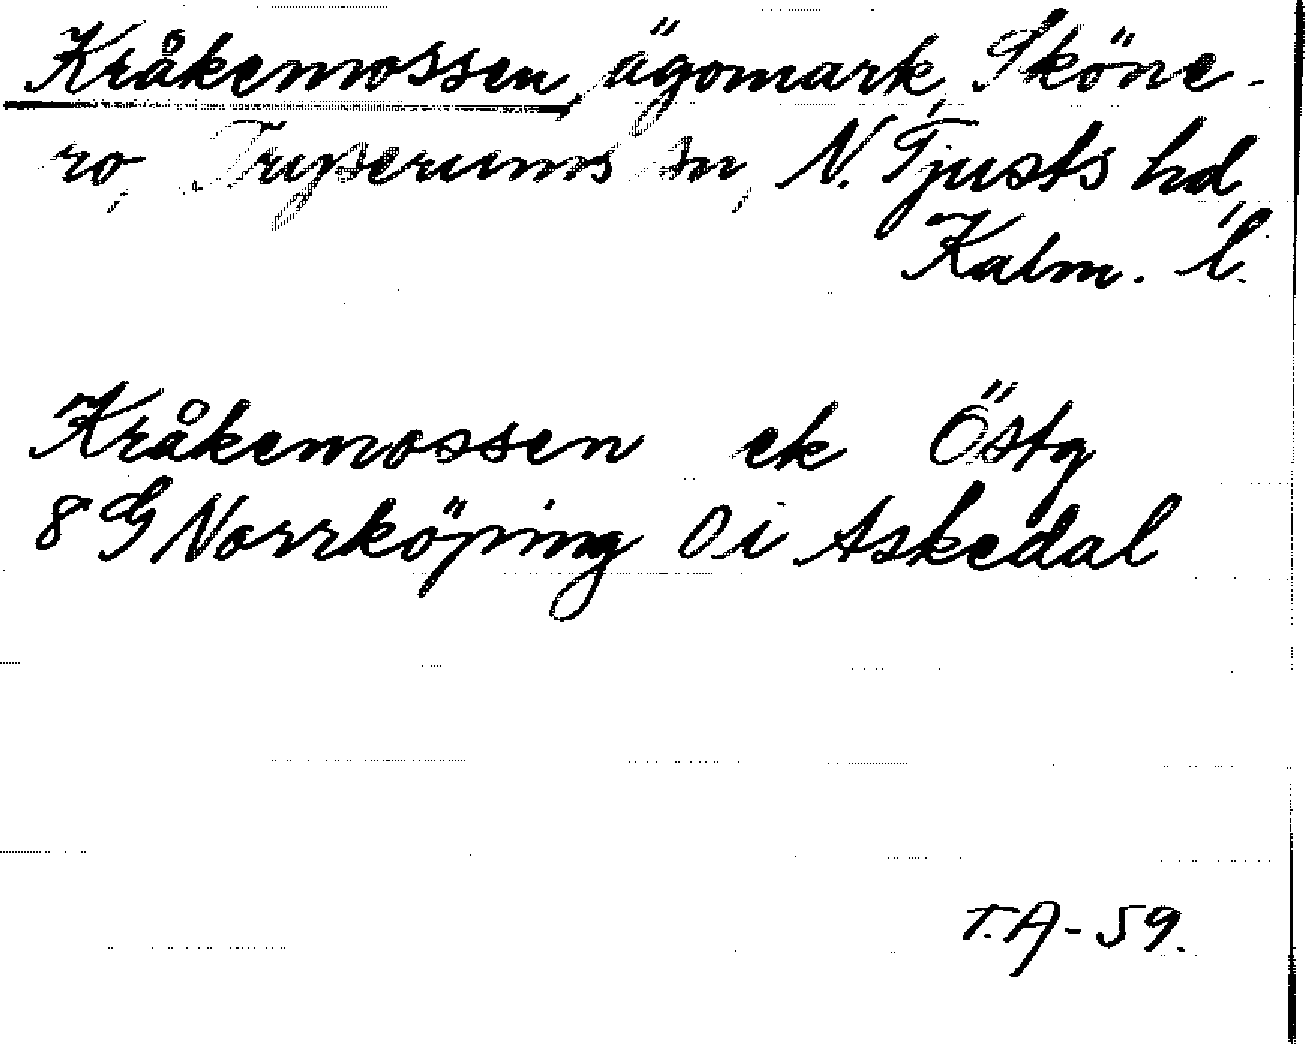 Kråkemossen, ägomark, Sköne-
ro, Tryserums sn, N. Tjusts hd,
Kalm. l.
Kråkemossen ek Östg
8 G Norrköping 0 i Askedal
T.A-59.